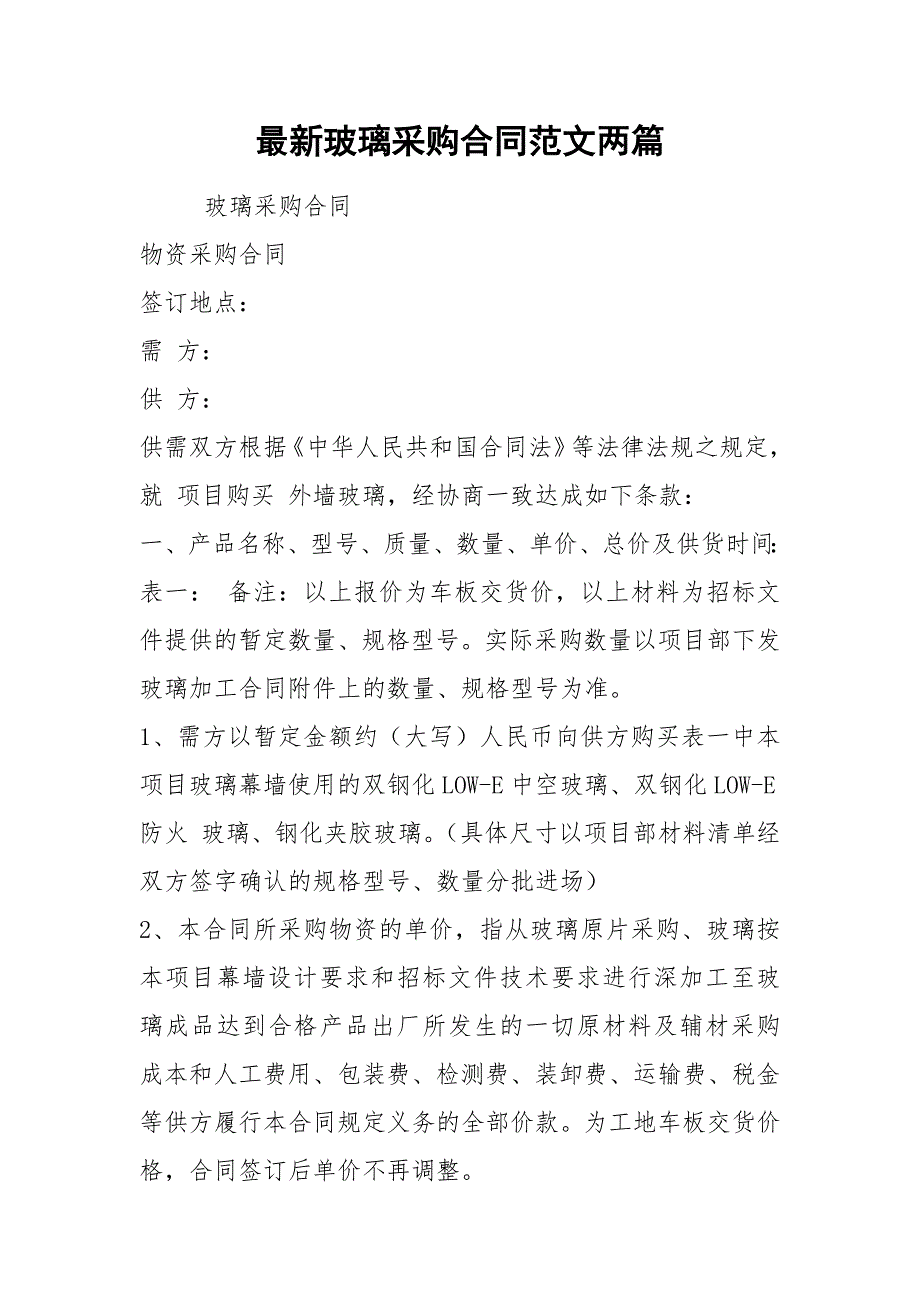 最新玻璃采购合同范文两篇
玻璃采购合同
物资采购合同
签订地点：
需 方：
供 方：
供需双方根据《中华人民共和国合同法》等法律法规之规定，
就 项目购买 外墙玻璃，经协商一致达成如下条款：
一、产品名称、型号、质量、数量、单价、总价及供货时间：
表一： 备注：以上报价为车板交货价，以上材料为招标文
件提供的暂定数量、规格型号。实际采购数量以项目部下发
玻璃加工合同附件上的数量、规格型号为准。
1、需方以暂定金额约（大写）人民币向供方购买表一中本
项目玻璃幕墙使用的双钢化LOW-E中空玻璃、双钢化LOW-E
防火 玻璃、钢化夹胶玻璃。（具体尺寸以项目部材料清单经
双方签字确认的规格型号、数量分批进场）
2、本合同所采购物资的单价，指从玻璃原片采购、玻璃按
本项目幕墙设计要求和招标文件技术要求进行深加工至玻
璃成品达到合格产品出厂所发生的一切原材料及辅材采购
成本和人工费用、包装费、检测费、装卸费、运输费、税金
等供方履行本合同规定义务的全部价款。为工地车板交货价
格，合同签订后单价不再调整。